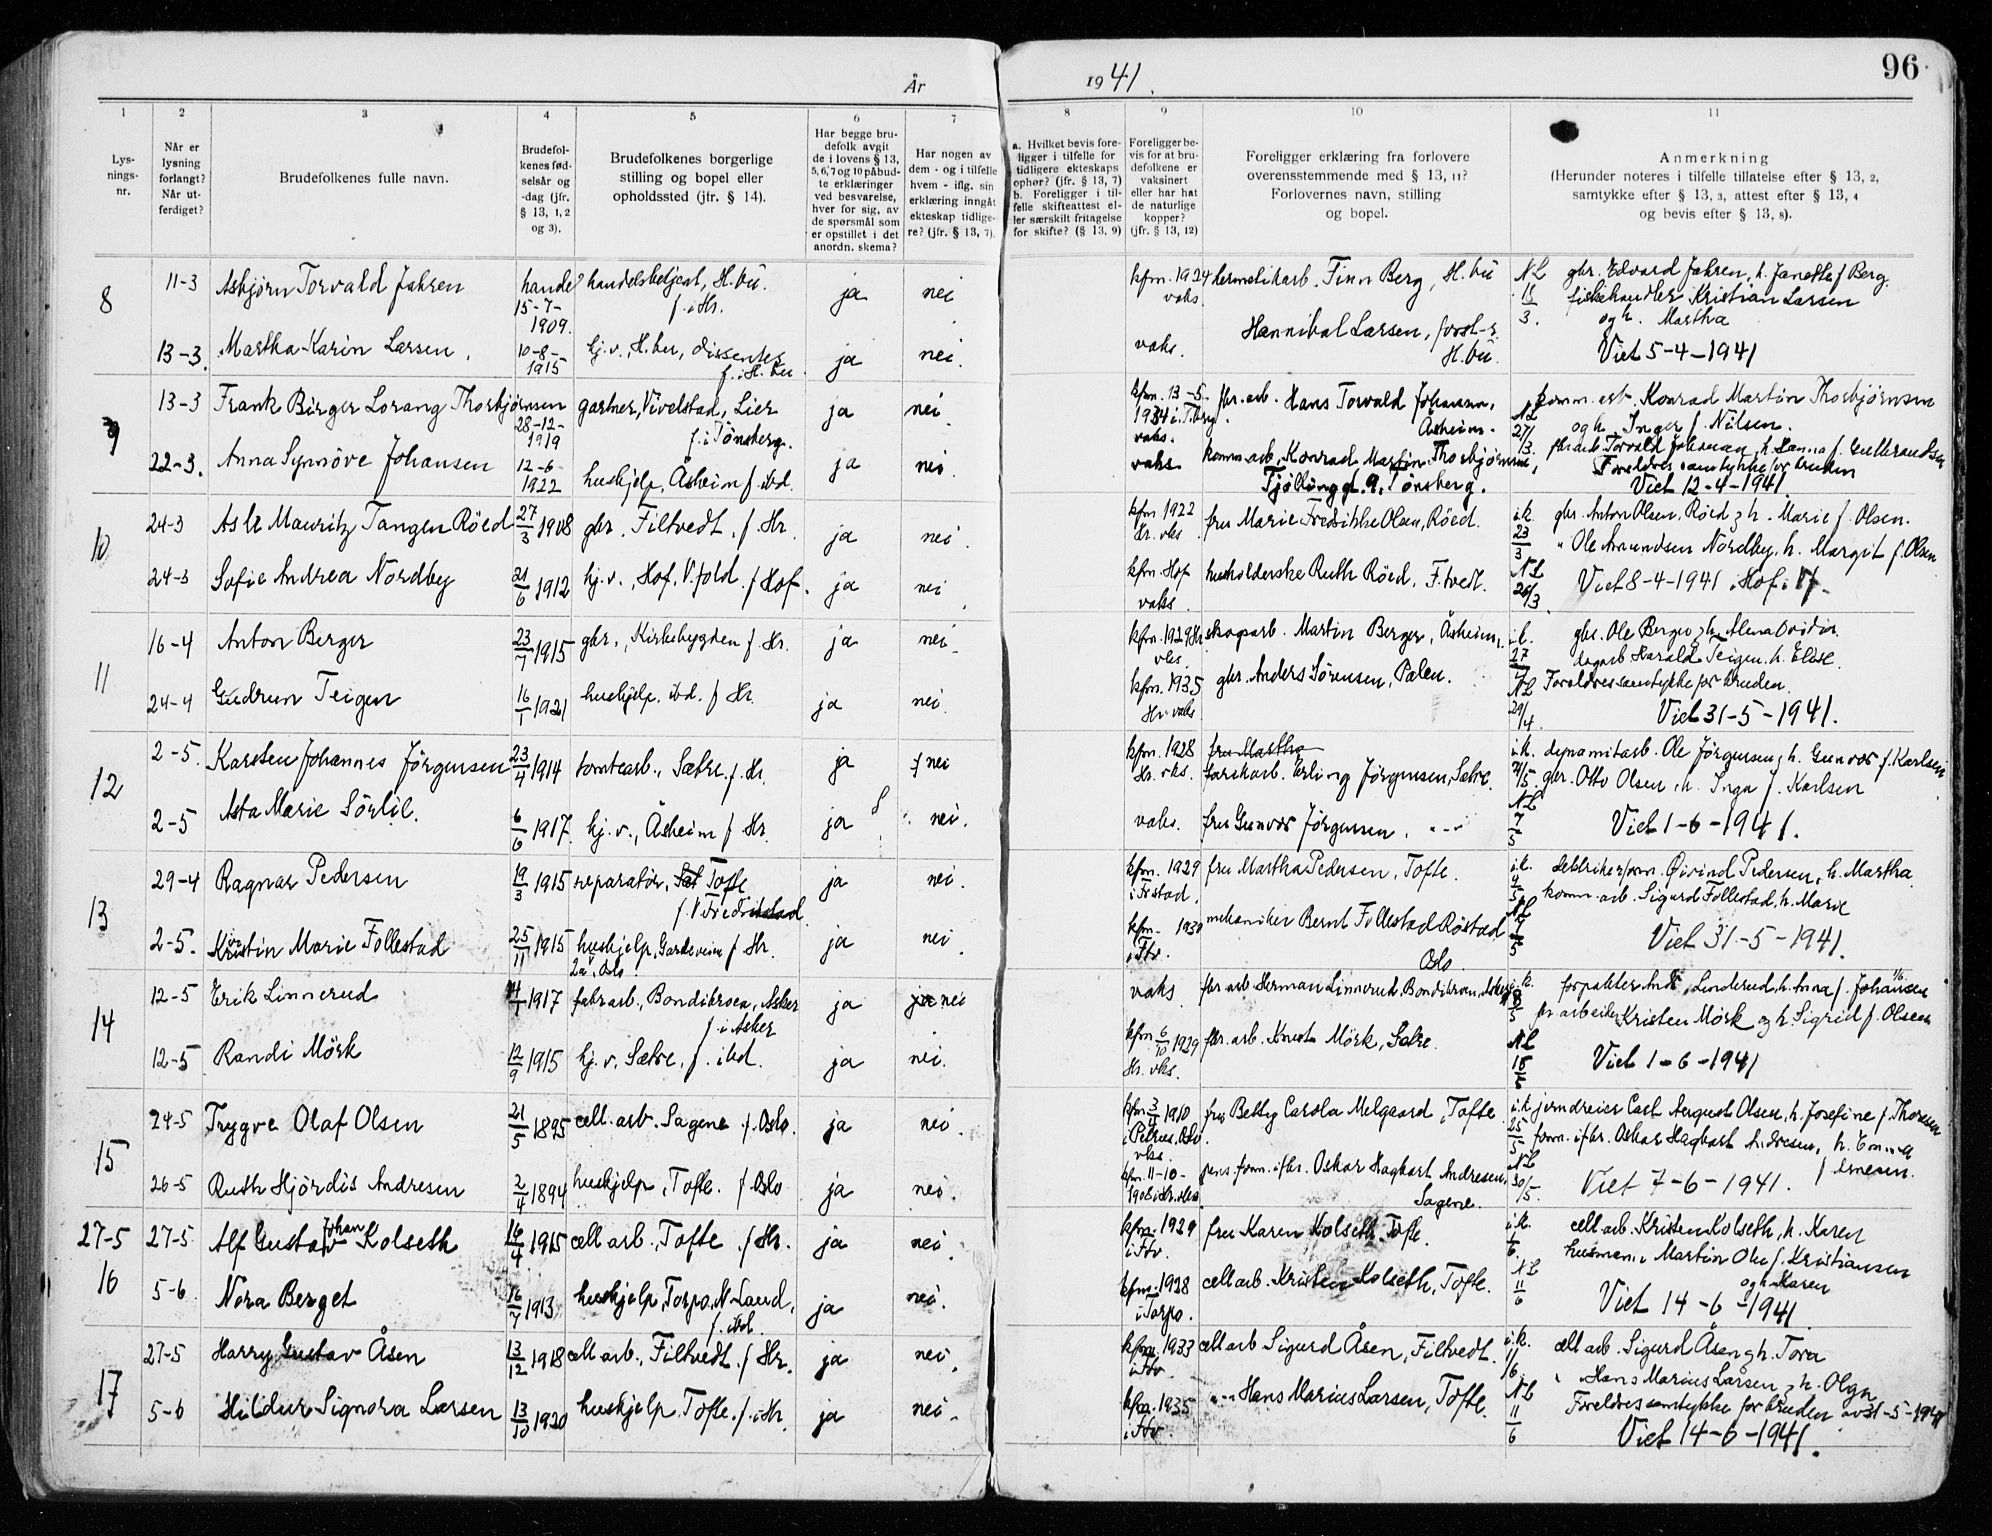 96
År 1941.
1
2
3
4
5
6
7
8
9
10
11
Lys-
nings-
nr.
Når er
lysning
forlangt?
Når ut-
ferdiget?
Brudefolkenes fulle navn.
Brudefol-
kenes fød-
selsår og
-dag (jfr.
§ 13, 1, 2
og 3).
Brudefolkenes borgerlige
stilling og bopel eller
opholdssted (jfr. § 14).
Har begge bru-
defolk avgit
de i lovens § 13,
5, 6, 7 og 10 påbud-
te erklæringer
ved besvarelse,
hver for sig, av
de spørsmål som
er opstillet i det
anordn. skema?
Har nogen av
dem - og i tilfelle
hvem - iflg. sin
erklæring inngåt
ekteskap tidlige-
re? (jfr. § 13, 7).
a. Hvilket bevis fore-
ligger i tilfelle for
tidligere ekteskaps
ophør? (jfr. § 13, 7)
b. Foreligger i til-
felle skifteattest el-
ler særskilt fritagelse
for skifte? (§ 13, 9)
Foreligger be-
vis for at bru-
defolkene er
vaksinert
eller har hat
de naturlige
kopper?
(jfr. § 13, 12)
Foreligger erklæring fra forlovere
overensstemmende med § 13, 11?
Forlovernes navn, stilling
og bopel.
Anmerkning
(Herunder noteres i tilfelle tillatelse efter § 13, 2,
samtykke efter § 13, 3, attest efter § 13, 4
og bevis efter § 13, 8).
8
11-3 Asbjørn Torvald Jahren 15-7-1909. handelsbetjent, H.bu. f. i Hr. ja nei kfm. 1924 vaks. hermetikarb. Finn Berg, H.bu NL 15/3. gbr. Edvard Jahren, h. Janette f Berg.
fiskehandler Kristian Larsen
og h. Martha
13-3. Martha Karin Larsen, 10-8-1915 hj. v., H.bu, dissenter f. i H.bu ja nei. vaks. Hannibal Larsen, H.bu. Viet 5-4-1941
9
13-3 Frank Birger Lorang Thorbjørnsen 28-12-1919 gartner, Vivelstad, Lier f. i Tønsberg. ja nei kfm. 13-5-1934 i T.berg. vaks. fbr. arb. Hans Torvald Johansen, Åsheim. NL 27/3. Konrad Martin Thorbjørnsen
og h. Inger f. Nilsen.
22-3. Anna Synnöve Johansen 12-6-1922 huskjelp, Åsheim f. ibd. ja nei. vaks komm. arb. Konrad Martin Thorbjørnsen, Tønsberg. fbr. arb. Torvald Johansen, h. Hanna f. Gulbrandsen
Foreldres samtykke for bruden
Viet 12-4-1941
10
24-3 Asle Mauritz Tangen Röed 27/3 1908 gbr. Filtvedt, f Hr. ja nei. kfm 1922 Hr. vks. fru Marie Fredrikke Olsen, Röed. i.k. 23/3 gbr. Anton Olsen, Röed og h. Marie f. Olsen.
24-3 Sofie Andrea Nordby 21/6 1912 hj. v. Hof, V.fold. f Hof. ja nei. kfm. Hof vaks. husholderske Ruth Röed, F.tvedt. NL 28/3. " Ole Amundsen Nordby, h. Margit f. Olsen
Viet 8-4-1941 i Hof i Vf.
11
16-4 Anton Berger 23/7 1915 gbr., Kirkebygden f. Hr. ja nei. kfm. 1929 Hr. vks. skogsarb. Martin Berger, Åsheim, i.k. 27 gbr. Ole Berger og h.
24-4 Gudrun Teigen 16/1 1921 huskjelp, ibd. f Hr ja nei. kfm. 1935 Hr. vaks gbr. Anders Sörensen, Pälen. NL 29/4. dagarb Harald Teigen, h. Elise.
Foreldresamtykke for bruden.
Viet 31-5-1941.
12
2-5. Karsten Johannes Jörgensen 23/4 1914 tomtearb., Sætre f. Hr. ja nei kfm. 1928 Hr. vks. fru Martha
fabrikarb. Erling Jörgensen, Sætre. i.k. 2/5. dynamitarb. Ole Jörgensen, h. Gunvor f. Karlsen
2-5 Asta Marie Sörlie. 6/6 1917. hj. v., Åsheim f Hr. ja nei. vaks. fru Gunvor Jörgensen. -"- NL 7/5 gbr. Otto Olsen, h. Inga f. Karlsen
Viet 1-6-1941.
13
29-4 Ragnar Pedersen 19/3 1915 reparatör, Sæt Tofte f. V Fredrikstad ja nei. kfm. 1929 i Fr.stad. fru Martha Pedersen, Tofte. i.k. 4/5 Øivind Pedersen, h. Martha.
2-5. Kristin Marie Follestad 25/11 1915 huskjelp, Gardeveien 2a, Oslo. f Hr. ja nei kfm. 1930 i Ftv. mekaniker Bernt Follestad Röstad Oslo. NL 7/5 komm. arb. Sigurd Follestad, h. Marie
Viet 31-5-1941.
14
12-5 Erik Linnerud 1917 fabr.arb., Bondibroen, Asker f. i Asker ja ja nei vaks fbr arb Herman Linnerud, Bondibroen, Asker i.k. 18/5 forpakter Linnerud, h. Anna f. Johansen
12-5 Randi Mörk 12/9 1915 hj. v. Sætre, f. ibd. ja nei. kfm 6/10 1929 Hr. vks. fbr. arb. Knut Mörk, Sætre. NL fbr arbeider Kristen Mörk og h. Sigrid f. Olsen
Viet 1-6-1941
15
24-5 Trygve Olaf Olsen 21/5 1895 cell. arb. Sagene f. Oslo. ja nei. kfm 3/4 1910 i Petrus, Oslo vks. fru Betty Carola Melgaard, Tofte i.k. 25/5 jerndreier Carl August Olsen, h. Josefine f. Thoresen
26-5 Ruth Hjördis Andresen 2/4 1894 huskjelp, Tofte. f Oslo ja nei. kfm. 11-10-1908 i Hr. vks pens. form. i fbr. Oskar Hagbart Andresen, Sagene. NL 30/5. form. i fbr. Oskar Hagbart Andresen, h. Emma f Arnesen.
Viet 7-6-1941.
27-5
16
27-5 Alf Gustav Johan Kolseth 16/4 1915 cell arb., Tofte. f Hr. ja nei kfm. 1929 i Ftv. fru Karen Kolseth Tofte. i.k. 1/6. cell arb. Kristen Kolseth, h. Karen
5-6. Nora Berget 16/7 1913 huskjelp, Torpo, N. Land, f. ibd. ja nei. kfm. 1928 i Torpo. cell arb. Kristen Kolseth, Tofte. NL 11/6 husmann Martin f. Kristiansen
og h. Karen
Viet 14-6-1941
17
27-5 Harry Gustav Åsen 13/12 1918 cell arb., Filtvedt. f Hr. ja nei. kfm. 1933 i Ftv. cell arb Sigurd Åsen, Filtvedt. i.k. 11/6. cell arb. Sigurd Åsen og h. Tora
5-6 Hildur Signora Larsen 13/10 1920 huskjelp Tofte. f. i Hr. ja nei. kfm. 1935 i Ftv -"- Hans Marius Larsen, Tofte. NL 11/6 " Hans Marius Larsen og h. Olga
Foreldres samtykke for bruden av 31-5-1941
Viet 14-6-1941.